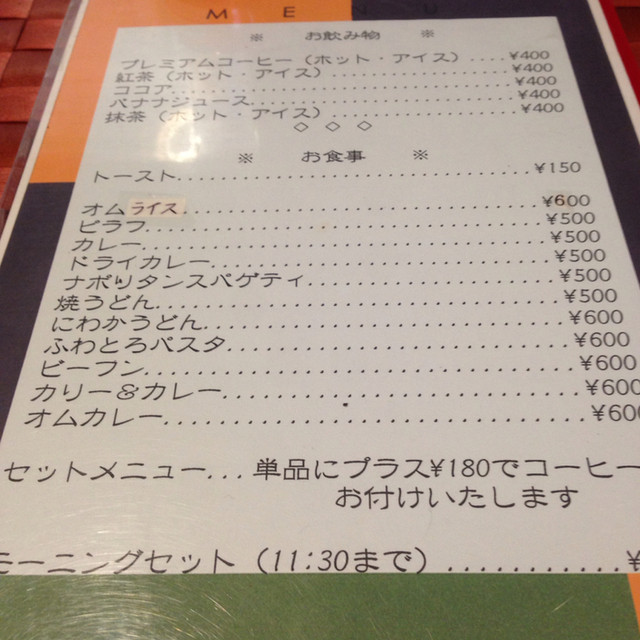 MENU
※ お飲み物 ※
プレミアムコーヒー（ホット・アイス）....¥400
紅茶（ホット・アイス）....................¥400
ココア........................................¥400
バナナジュース..............................¥400
抹茶（ホット・アイス）....................¥400
◇ ◇ ◇
※ お食事 ※
トースト......................................¥150
オムライス....................................¥600
ピラフ........................................¥500
カレー........................................¥500
ドライカレー..................................¥500
ナポリタンスパゲティ........................¥500
焼うどん......................................¥500
にわかうどん..................................¥600
ふわとろパスタ................................¥600
ビーフン......................................¥600
カリー＆カレー................................¥600
オムカレー....................................¥600
セットメニュー...単品にプラス¥180でコーヒー
お付けいたします
モーニングセット（11:30まで）..........¥